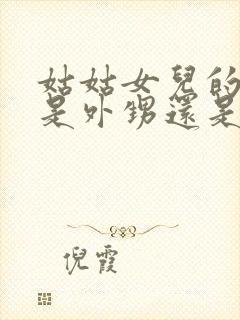 姑姑女兒的
是外甥還是
倪霞